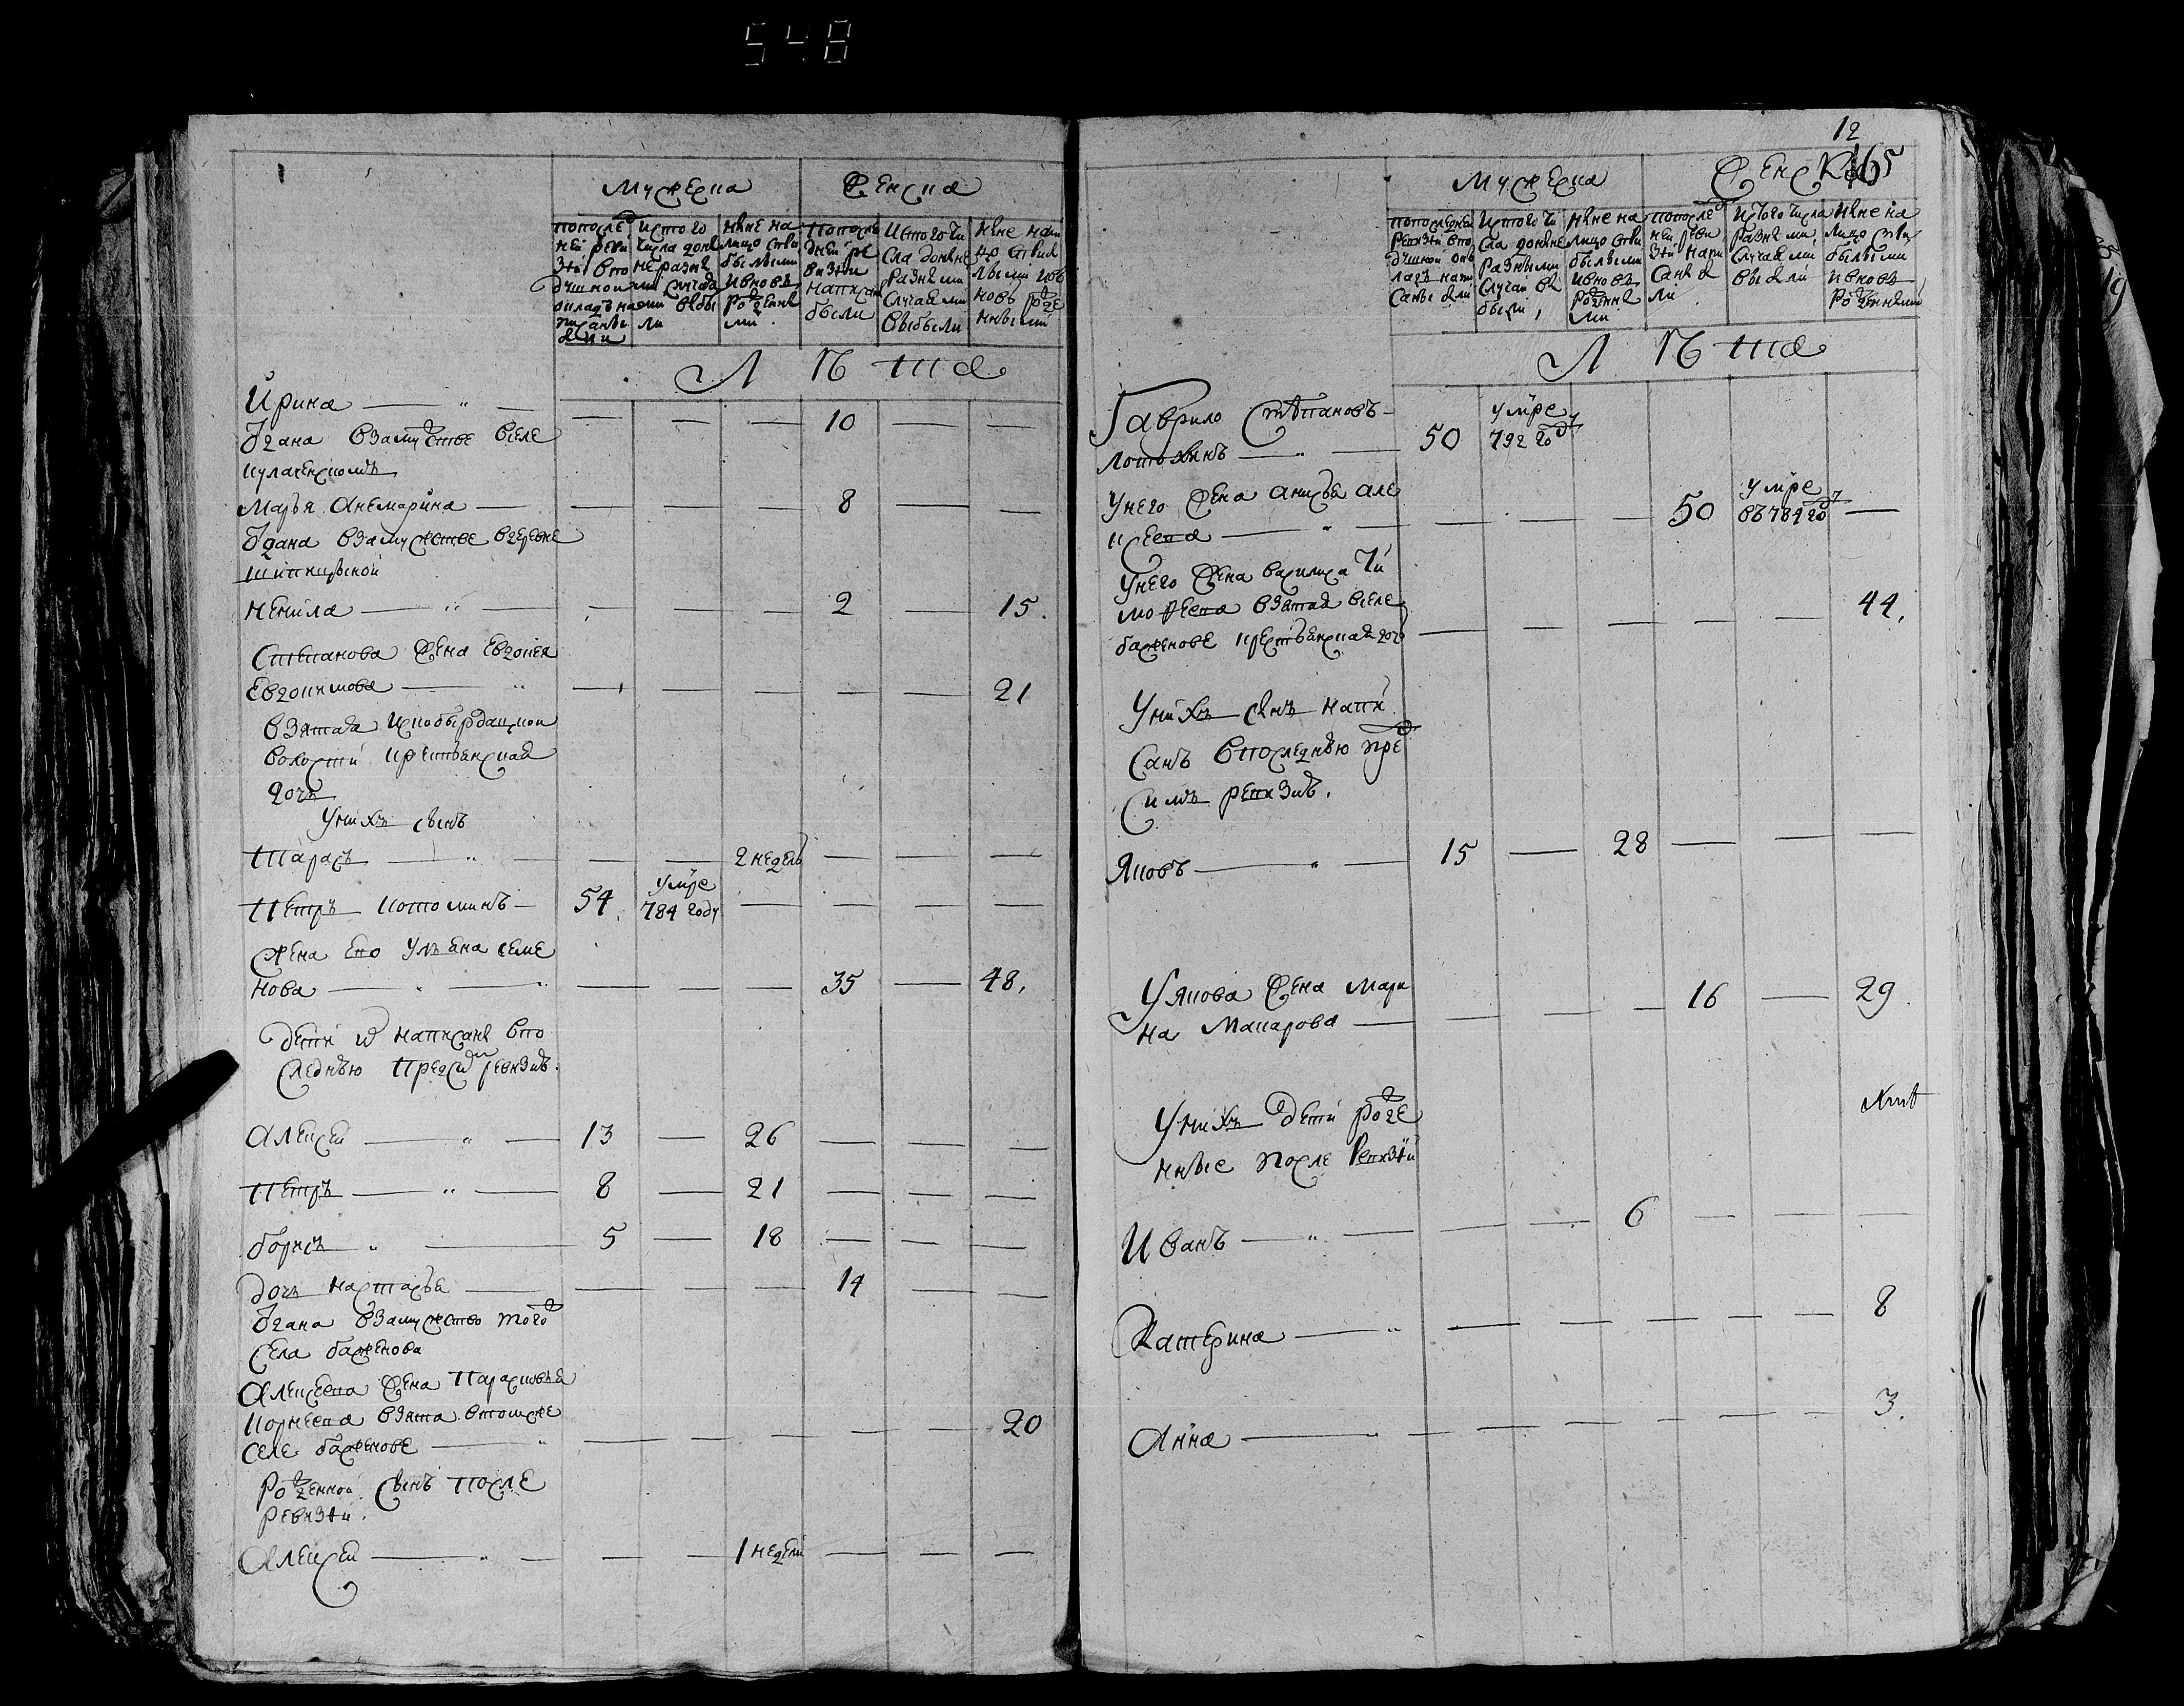 548
Мужеска
Женска
попослед
ней реви
зіи в по
душной
окладъ на
писаны
были
ис того
числа до ны
не разны
ми случая
ми выбы
ли
ныне на
лицо стви
былыми
и вновь
рожденны
ми
попосле
дней ре
визіи
написан
были
ис того чи
сла до ныне
разными
случаями
выбыли
ныне нали
цо с при
лыми и в
новь рожде
нными
Лѣта
Ирина — „ — — — — — 10 — —
Отдана взамужство в селе
Кулаченском
Марья Екемарина — — — — 8 — —
Отдана взамужстве в деревне
Шипицыной
Ненила — „ — — — — 2 — 15.
Степанова жена Евдокея
Евдокимова — „ — — — — — 21
взятая ис побырдацкой
волости крестьянская
дочь
У них сынъ
Тарасъ — „ — — — 2 недель — — —
Петръ потоминъ — 54. умре 784 году — — — —
жена ево Ульяна Семе
нова — „ — „ — — — 35 — 48.
дети их написаны в по
следнюю пред сим ревизию.
Алексей — „ — 13 — 26 — — —
Петръ — „ — 8 — 21 — — —
борисъ „ — 5 — 18 — — —
дочь Настасья — — — — 14 — —
Отдана взамужство того ж
села баженова
Алексеева жена Парасковья
Корнеева взята в том же
селе баженове — „ — — — — — 20
Рожденной сынъ после
ревизіи.
Алексей — „ — — — 1 недели — — —
12
165
Мужеска
Женска
попоследней
ревизіи в по
душной ок
ладъ напи
саны были
ис того чи
сла до ныне
разными
случаи вы
были,
ныне на
лицо с при
былыми
и вновь
рожденны
ми
попослед
ней реви
зіи напи
саны бы
ли
ис того числа
разными
случаями
выбыли
ныне на
лицо с при
былыми
и вновь
рожденными
Лѣта
Гаврило Степановъ —
Лотохинъ — „ — 50 умре 792 год
У него жена Анисья Але
ксеева — „ — — — — 50 умре въ 784 год —
У него жена василиса Ти
мофеева взятая в селе
баженове крестьянская дочь — — — — — 44.
У них сынъ напи
санъ в последнюю пред
симъ ревизию.
Яковъ — „ — 15 — 28 — — —
У Якова жена Мари
на Макарова — — — — 16 — 29.
лѣт
У них дети рожде
нные после ревизіи
Иванъ — „ — — — 6 — — —
Катерина — „ — — — — — 8
Анна — „ — — — — — 3.